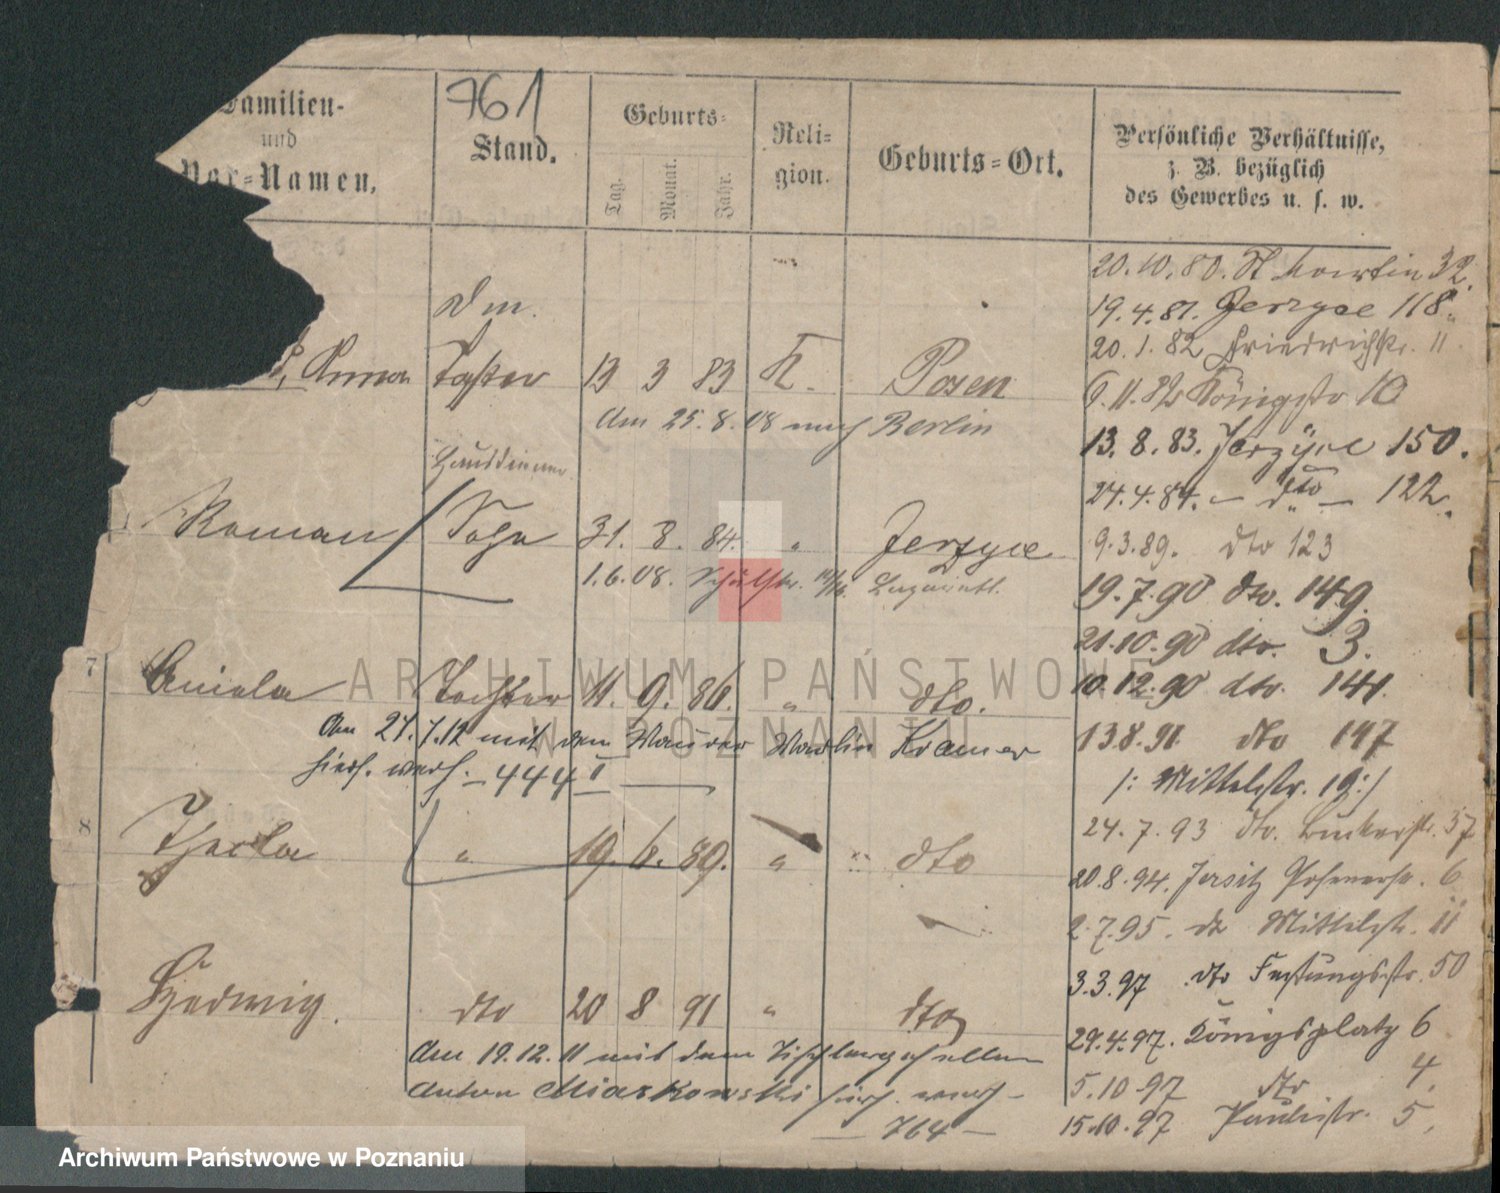 761
Familien-
und
Vor-Namen,
Stand.
Geburts-
Tag.
Monat.
Jahr.
Reli-
gion.
Geburts-Ort.
Persönliche Verhältnisse,
z. B. bezüglich
des Gewerbes u. s. w.
Anna Tochter 13 3 83 K. Posen
Am 25.8.08 nach Berlin
Roman Sohn 31. 8. 84. " Jerzyce
1.6.08.
7 Aniela Tochter 11. 9. 86. " dto.
Am 27.7.12 mit dem Maurer Kramer
hier. verh. – 444 I
8 Thecla " 19. 6. 89. " dto
Hedwig. dto 20 8 91 " dto
Am 19.12.11 mit dem Tischlergesellen
Anton Miaskowski hier. verh. –
– 764 –
20.10.80. St Martin 32.
19.4.81. Jerzyce 118.
20.1.82 Friedrichstr. 11
9.11.82 Königstr 10
13.8.83. Jerzyce 150.
24.4.84. – dto – 122.
9.3.89. dto 123
19.7.90 dto. 149.
21.10.90 dto. 3.
10.12.90 dto. 141.
13.8.91 dto 147
/: Mittelstr. 19:/
24.7.93 dto. 37
20.8.94. Jersitz Posenerstr. 6
2.7.95. dto Mittelstr. 11
3.3.97 dto Festungsstr. 50
29.4.97. Königsplatz 6
5.10 97 dto 4.
15.10.97 Paulistr. 5.
ARCHIWUM PAŃSTWOWE
W POZNANIU
Archiwum Państwowe w Poznaniu